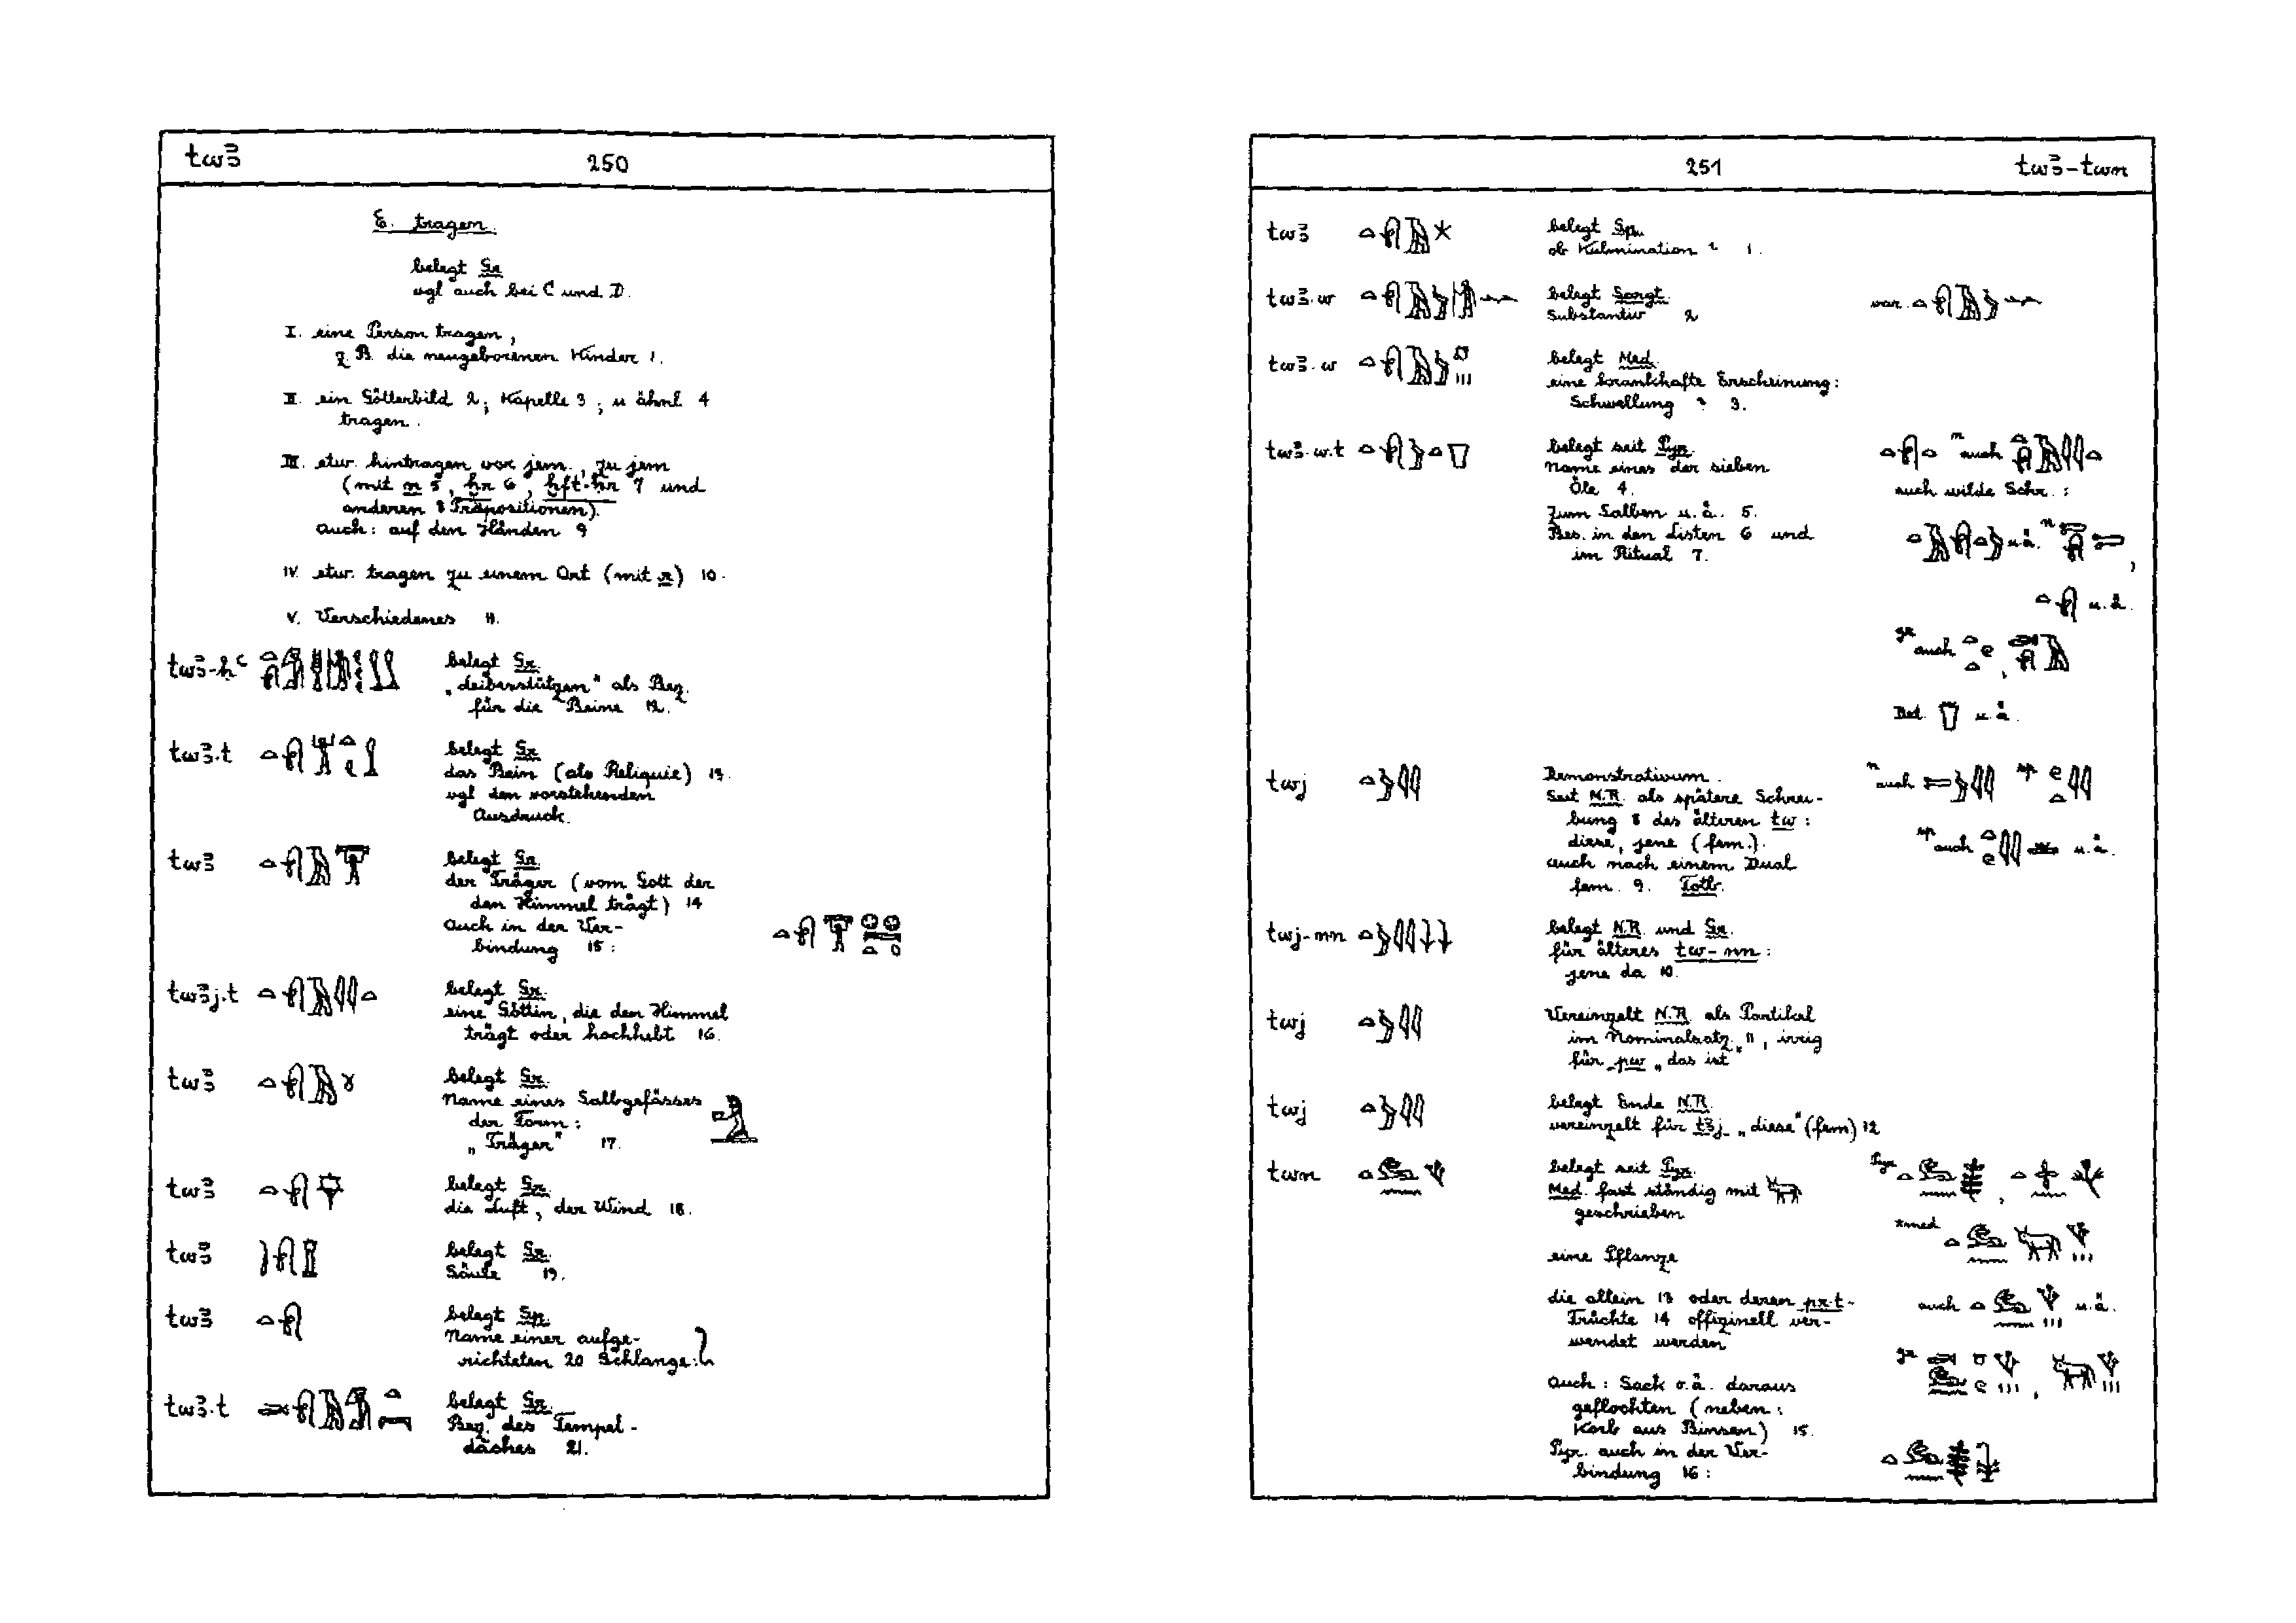 twꜣ 250
E. tragen.
belegt Gr.
vgl auch bei C und D.
I. eine Person tragen,
z. B. die neugeborenen Kinder 1.
II. ein Götterbild 2; Kapelle 3; u ähnl 4
tragen.
III. etw. hintragen vor jem., zu jem
(mit n 5, ḫr 6, ḫft-ḥr 7 und
anderen 8 Präpositionen).
Auch: auf den Händen 9
IV. etw. tragen zu einem Ort (mit r) 10.
V. Verschiedenes 11.
twꜣ-ḥꜥ belegt Gr.
„Leibesstützen" als Bez.
für die Beine 12.
twꜣ.t belegt Gr.
das Bein (als Reliquie) 13.
vgl den vorstehenden
Ausdruck.
twꜣ belegt Gr.
der Träger (vom Gott der
den Himmel trägt) 14
Auch in der Ver-
bindung 15:
twꜣj.t belegt Gr.
eine Göttin, die den Himmel
trägt oder hochhebt 16.
twꜣ belegt Gr.
Name eines Salbgefässes
der Form:
„Träger" 17.
twꜣ belegt Gr.
die Luft, der Wind 18.
twꜣ belegt Gr.
Säule 19.
twꜣ belegt Sp.
Name einer aufge-
richteten 20 Schlange:
twꜣ.t belegt Gr.
Bez. des Tempel-
daches 21.
251 twꜣ-twn
twꜣ belegt Sp.
ob Kulmination? 1.
twꜣ.w belegt Sargt. var.
Substantiv 2
twꜣ.w belegt Med.
eine krankhafte Erscheinung:
Schwellung? 3.
twꜣ.w.t belegt seit Pyr. n auch
Name eines der sieben
Öle 4. auch wilde Schr.:
Zum Salben u. ä. 5.
Bes. in den Listen 6 und u. ä. n
im Ritual 7.
u. ä.
gr auch
Det. u. ä.
twj Demonstrativum. n auch sp
Seit M.R. als spätere Schrei-
bung 8 des älteren tw:
diese, jene (fem.). sp auch u. ä.
auch nach einem Dual
fem. 9. Totb.
twj-nn belegt N.R. und Gr.
für älteres tw-nn:
jene da 10.
twj Vereinzelt N.R. als Partikel
im Nominalsatz 11, irrig
für pw „das ist"
twj belegt Ende N.R.
vereinzelt für tꜣj „diese" (fem) 12
twn belegt seit Pyr. Pyr
Med. fast ständig mit
geschrieben
med
eine Pflanze
die allein 13 oder deren pr.t- auch u. ä.
Früchte 14 offizinell ver-
wendet werden
gr
Auch: Sack o. ä. daraus
geflochten (neben:
Korb aus Binsen) 15.
Pyr. auch in der Ver-
bindung 16: